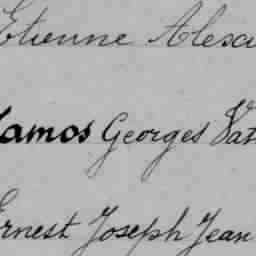 Etienne Alexa
Lamos Georges Vat
Ernest Joseph Jean